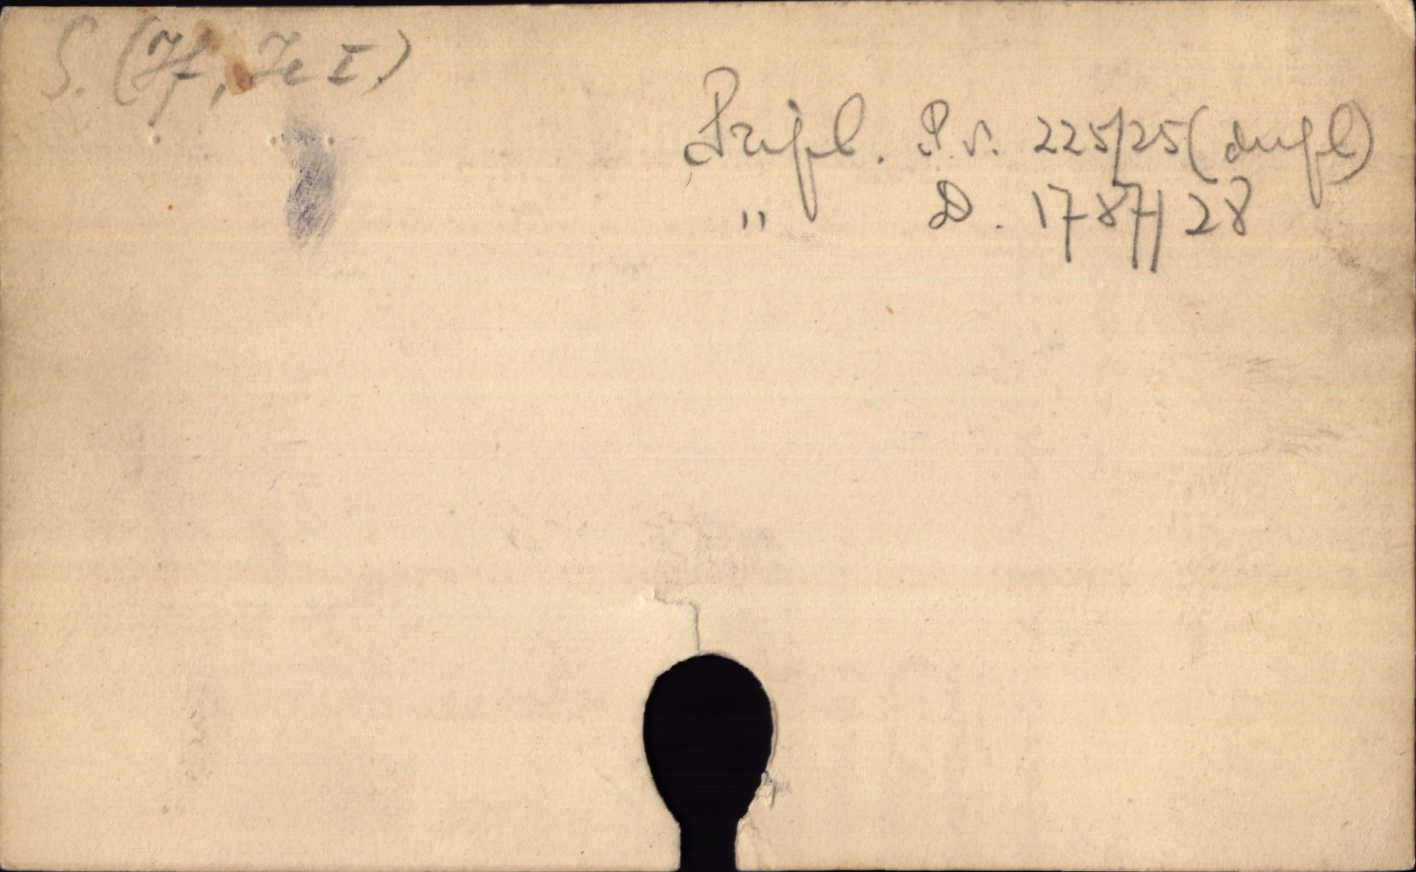 S. (If, Ie I.)
Pripl. P.v. 225/25 (dupl)
" D. 1787/28